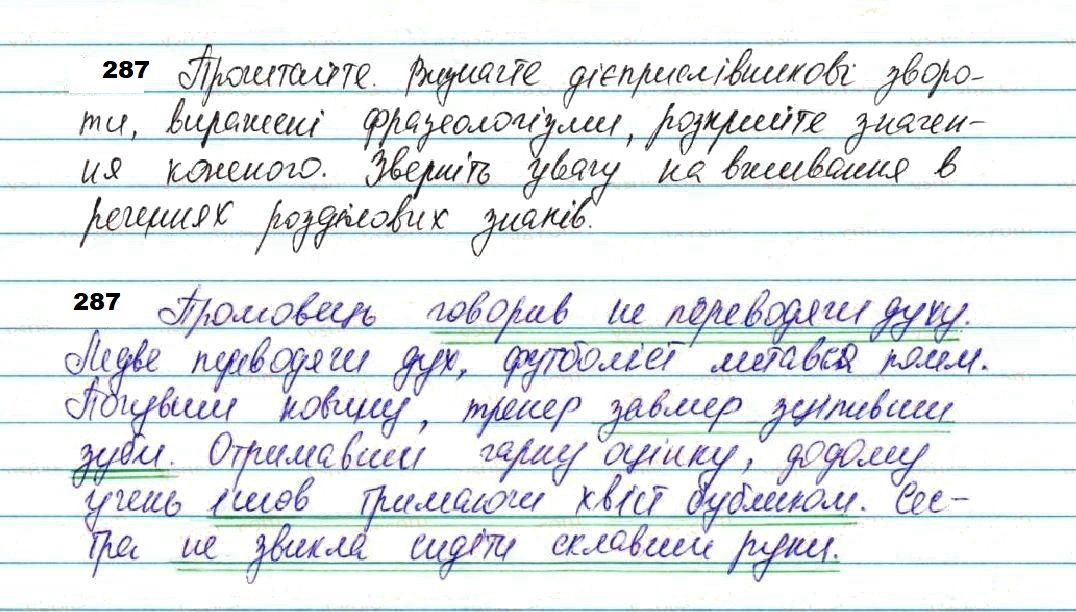 287 Прочитайте. Визначте дієприслівникові зворо-
ти, виражені фразеологізми, розкрийте значен-
ня кожного. Зверніть увагу на вживання в
реченнях розділових знаків.
287 Промовець говорив не переводячи духу.
Ледве переводячи дух, футболіст метався полем.
Почувши новину, тренер завмер зціпивши
зуби. Отримавши гарну оцінку, додому
учень ішов тримаючи хвіст бубликом. Сес-
тра не звикла сидіти склавши руки.